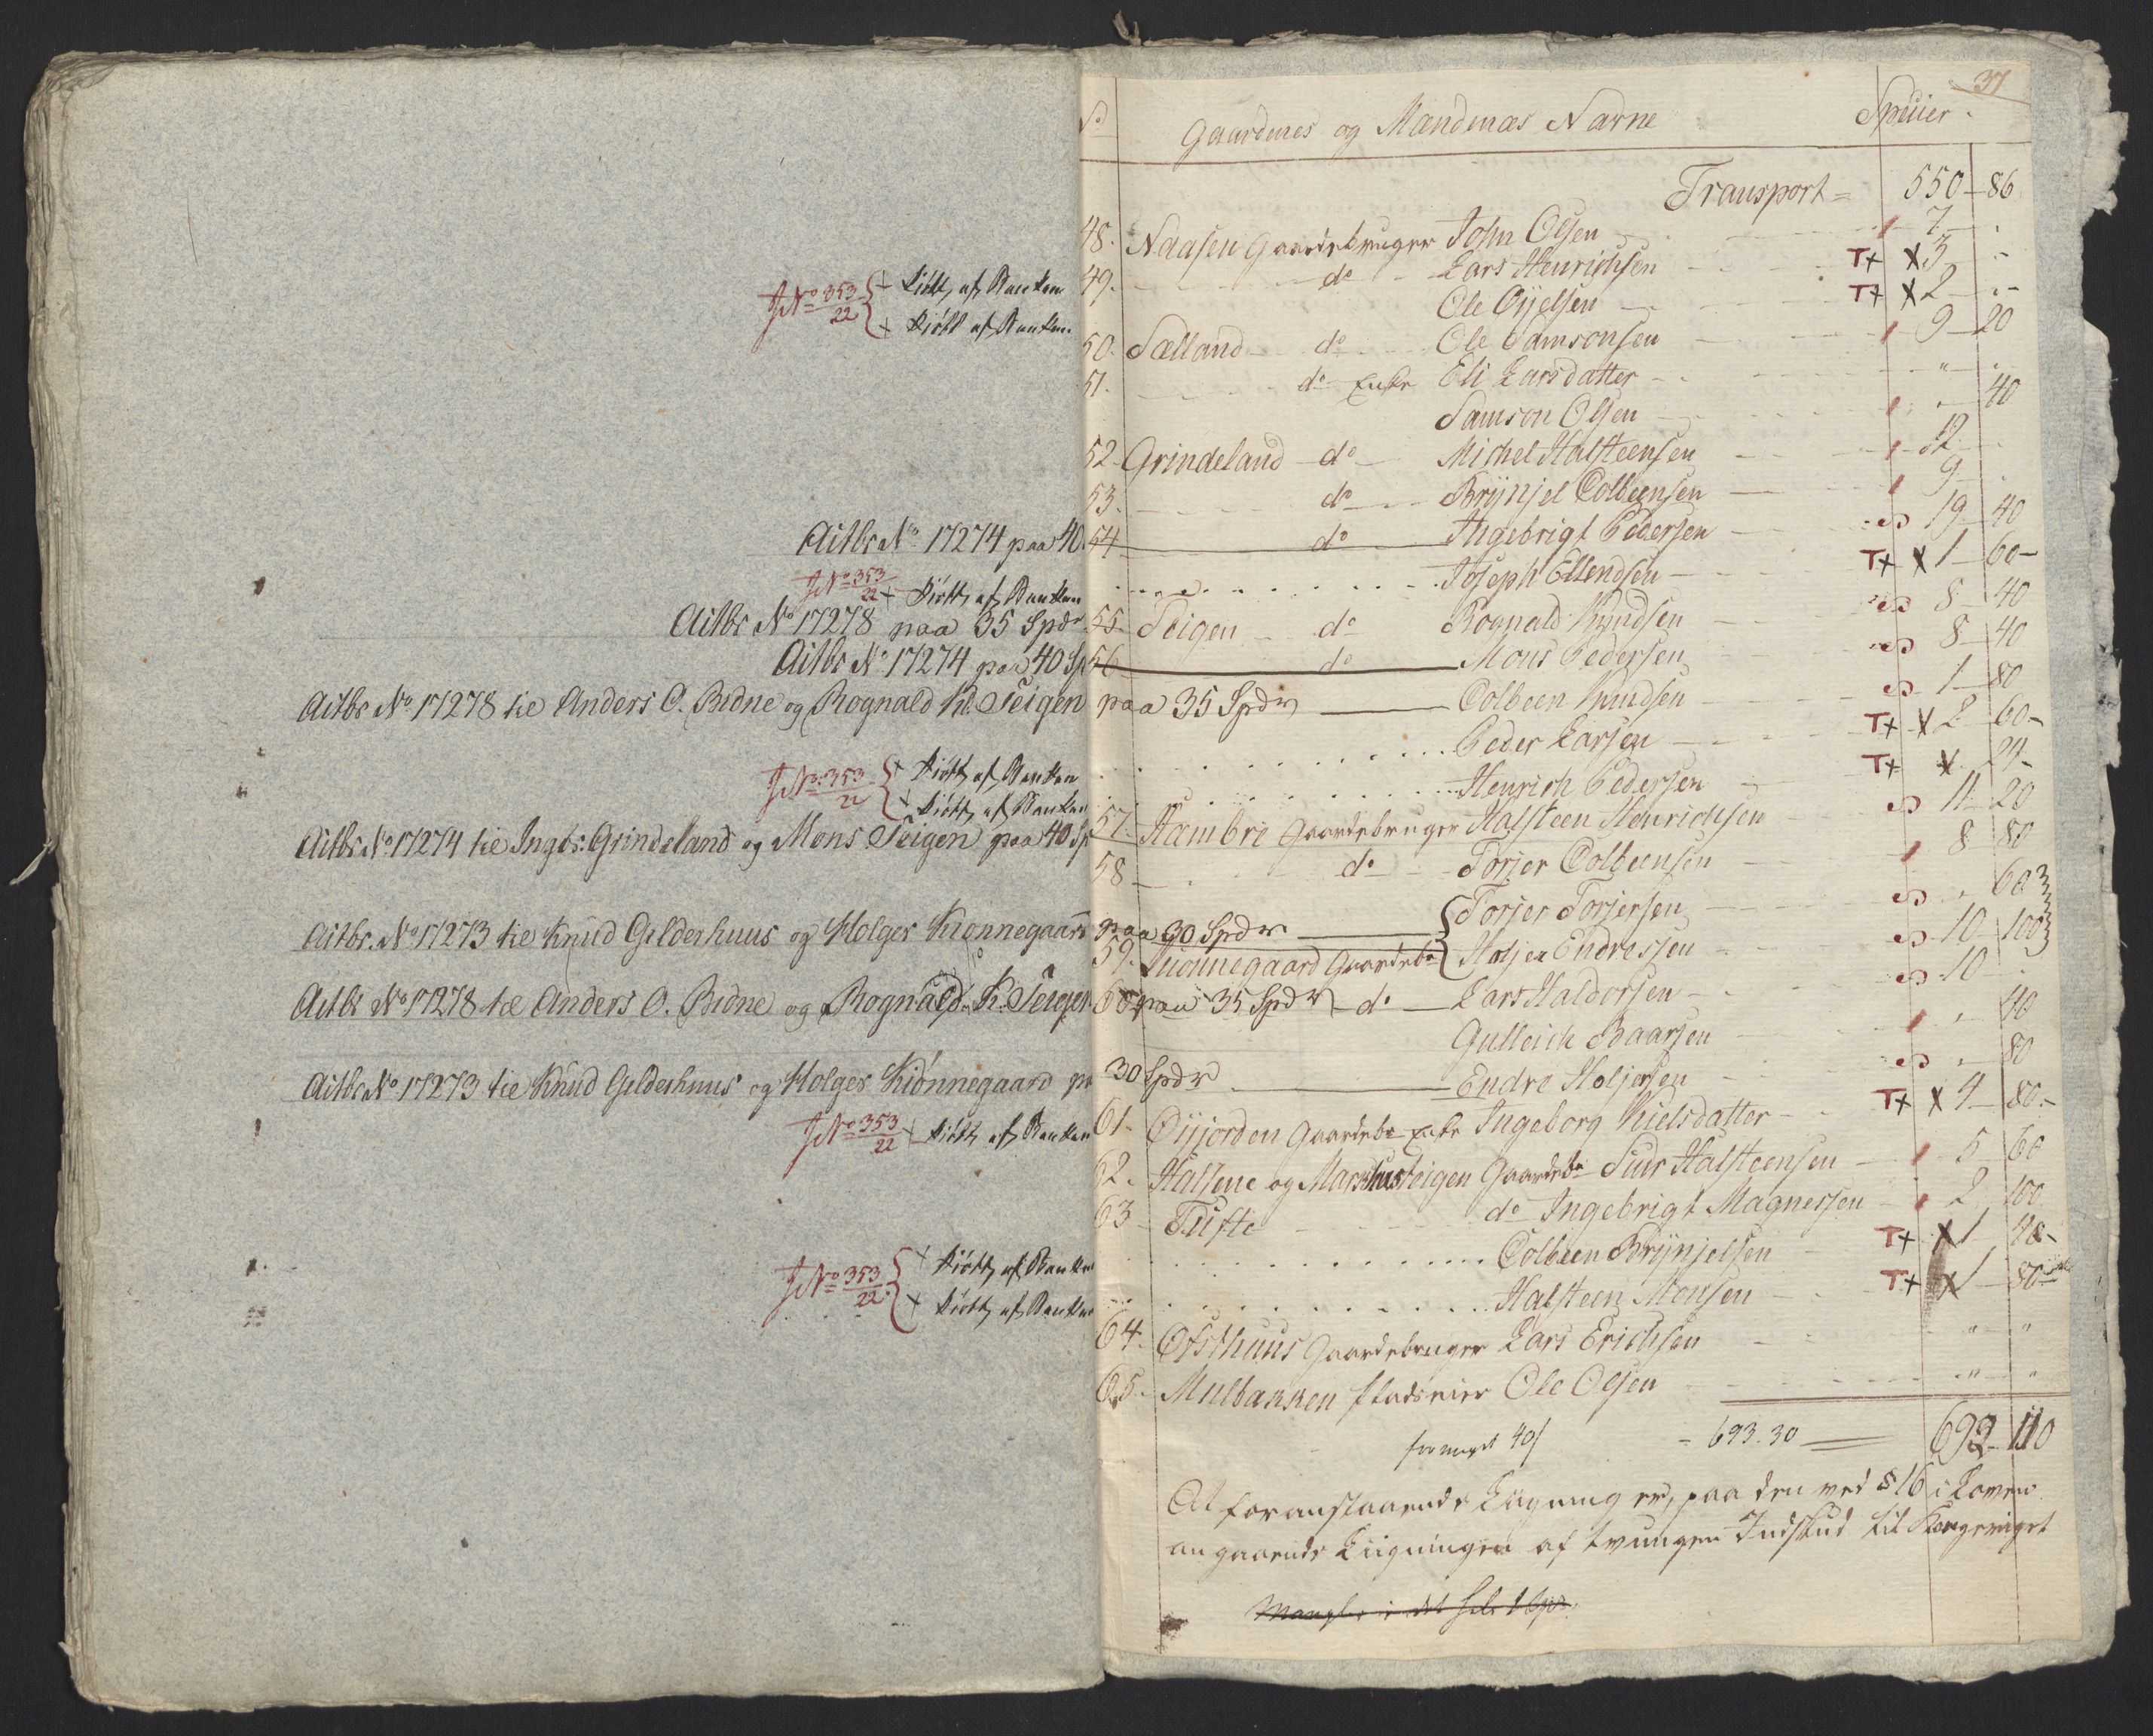 37
No Gaardenes og Mændenes Navne Spesier.
Transport = 550 - 86
48. Naasen Gaardebruger John Olsen 7 -
49. do Lars Henrichsen T+ X 3 -
Ole Oyjelsen T+ X 2 -
50. Sælland do Ole Samsonsen 9 - 20
51. do Enke Eli Larsdatter " -
Samson Olsen - 40
52. Grindeland do Michel Halsteensen 12 -
53. do Brynjel Colbeensen 9 -
54 do Ingebrigt Pedersen 19 - 40
Joseph Ellendsen T+ X 1 - 60 -
55. Teigen do Rognald Knudsen 8 - 40
56 do Mons Pedersen 8 - 40
Colbeen Knudsen 1 - 80
Peder Larsen T+ X 2 - 60 -
Henrich Pedersen T+ X 24 -
57. Hæmbre Gaardebruger Halsteen Henrichsen 11 - 20
58 do Torjer Colbeensen 8 - 80
Torjer Torjersen - 60
59. Kionnegaard Gaardebr Holjer Endresen 10 - 100
60 do Lars Haldorsen 10 -
Gulleich Baarsen - 40
Endre Holjersen - 80
61. Oyjorden Gaardebr Enke Ingeborg Nielsdatter T+ X 4 - 80 -
62. Halsene og Markhusteigen Gaardebr Siur Halsteensen 5 - 60
63 Tufte do Ingebrigt Magnessen 2 - 100
Colbeen Brynjelsen T+ X 1 - 48 -
Halsteen Monsen T+ X 1 - 80
64. Østhuus Gaardebruger Lars Erichsen " - "
65. Mulbakken Pladseier Ole Olsen " - "
40 693.30 692 110
At foranstaaende Ligning er, paa den ved § 16 i Loven
angaaende Ligningen af tvungen Indskud til Kongeriget
Mangler i det hele 1 Spd.
J No 353/22 + Kiøbt af Banken
+ Kiøbt af Banken
Actbr No 17274 paa 40
J No 353/22 + Kiøbt af Banken
Actbr No 17278 paa 35 Spdr
Actbr No 17274 paa 40 Sp
Actbr No 17278 til Anders O. Bidne og Rognald Kn. Teigen paa 35 Spdr
J No 353/22 + Kiøbt af Banken
+ Kiøbt af Banken
Actbr No 17274 til Ingbr: Grindeland og Mons Teigen paa 40 Sp
Actbr. No 17273 til Knud Gilderhuus og Holger Kionnegaard paa 30 Spdr
Actbr No 17278 til Anders O. Bidne og Rognald K. Teigen paa 35 Spdr
Actbr No 17273 til Knud Gilderhuus og Holger Kiønnegaard paa 30 Spdr
J No 353/22 + Kiøbt af Banken
J No 353/22 + Kiøbt af Banken
+ Kiøbt af Banken